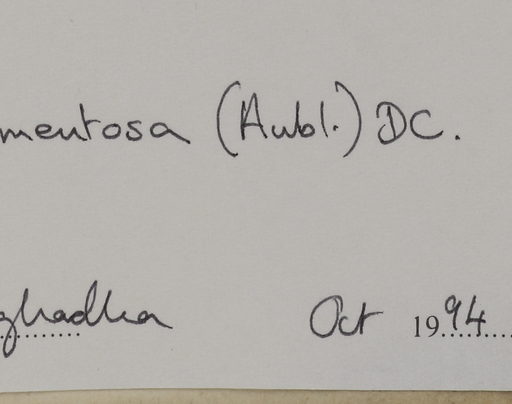 mentosa (Aubl.) DC.
ghadha Oct 1994